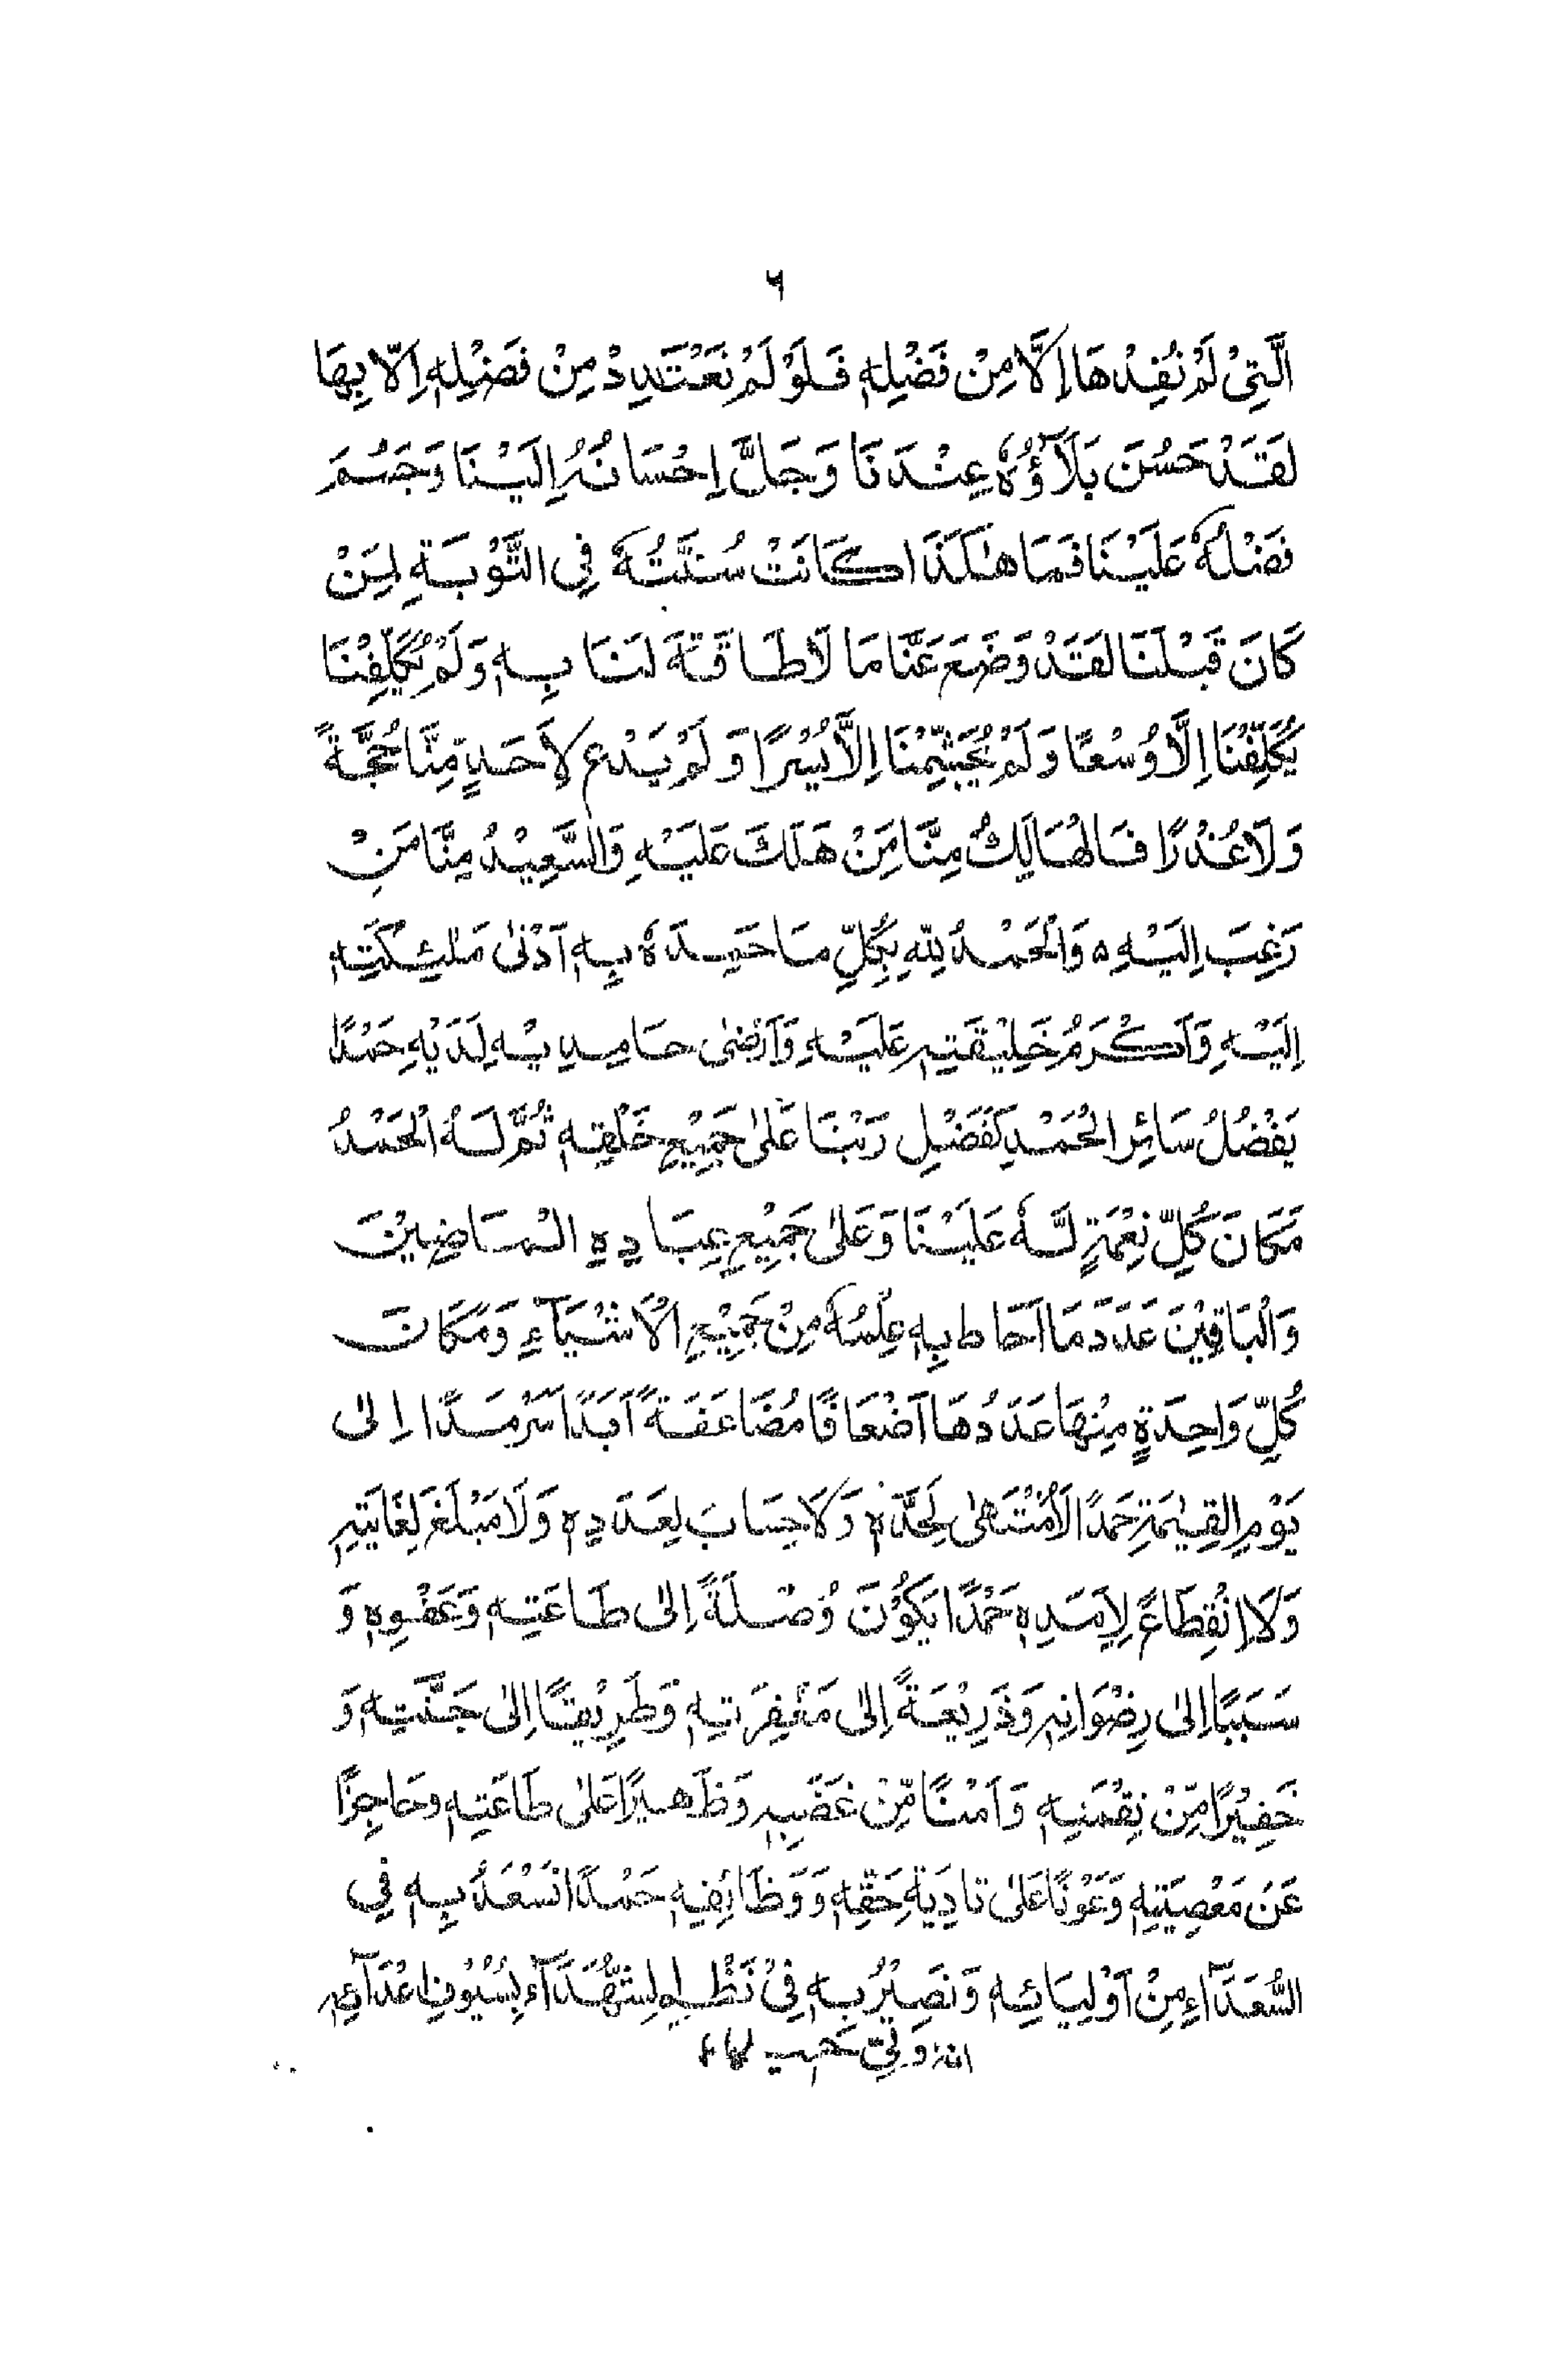 ٦
الَّتِيْ لَمْ نُفِدْهَا اِلَّا مِنْ فَضْلِهٖ فَلَوْ لَمْ نَعْتَدِدْ مِنْ فَضْلِهٖ اِلَّا بِهَا
لَقَدْ حَسُنَ بَلَآؤُهٗ عِنْدَنَا وَجَلَّ اِحْسَانُهُ اِلَيْنَا وَجَسُمَ
فَضْلُهٗ عَلَيْنَا فَمَا هٰكَذَا كَانَتْ سُنَّتُهٗ فِي التَّوْبَةِ لِمَنْ
كَانَ قَبْلَنَا لَقَدْ وَضَعَ عَنَّا مَا لَا طَاقَةَ لَنَا بِهٖ وَلَمْ يُكَلِّفْنَا
يُكَلِّفْنَا اِلَّا وُسْعًا وَلَمْ يُجَشِّمْنَا اِلَّا يُسْرًا وَلَمْ يَدْع لِاَحَدٍ مِّنَّا حُجَّةً
وَلَا عُذْرًا فَالْهَالِكُ مِنَّا مَنْ هَلَكَ عَلَيْهِ وَالسَّعِيْدُ مِنَّا مَنْ
رَغِبَ اِلَيْهِ ہ وَالْحَمْدُ لِلّٰهِ بِكُلِّ مَا حَمِدَهٗ بِهٖ اَدْنٰى مَلٰٓئِكَتِهٖ
اِلَيْهِ وَاَكْرَمُ خَلِيْقَتِهٖ عَلَيْهِ وَاَرْضٰى حَامِدِيْهِ لَدَيْهِ حَمْدًا
يَفْضُلُ سَائِرَ الْحَمْدِ كَفَضْلِ رَبِّنَا عَلٰى جَمِيْعِ خَلْقِهٖ ثُمَّ لَهُ الْحَمْدُ
مَكَانَ كُلِّ نِعْمَةٍ لَّهٗ عَلَيْنَا وَعَلٰى جَمِيْعِ عِبَادِهِ الْمَاضِيْنَ
وَالْبَاقِيْنَ عَدَدَ مَا اَحَاطَ بِهٖ عِلْمُهٗ مِنْ جَمِيْعِ الْاَشْيَآءِ وَمَكَانَ
كُلِّ وَاحِدَةٍ مِنْهَا عَدَدُهَا اَضْعَافًا مُضَاعَفَةً اَبَدًا سَرْمَدًا اِلٰى
يَوْمِ الْقِيٰمَةِ حَمْدًا لَا مُنْتَهٰى لِحَدِّهٖ وَلَا حِسَابَ لِعَدَدِهٖ وَلَا مَبْلَغَ لِغَايَتِهٖ
وَلَا اِنْقِطَاعَ لِاَمَدِهٖ حَمْدًا يَكُوْنُ وُصْلَةً اِلٰى طَاعَتِهٖ وَعَفْوِهٖ وَ
سَبَبًا اِلٰى رِضْوَانِهٖ وَذَرِيْعَةً اِلٰى مَغْفِرَتِهٖ وَطَرِيْقًا اِلٰى جَنَّتِهٖ وَ
خَفِيْرًا مِّنْ نِقْمَتِهٖ وَاَمْنًا مِّنْ غَضَبِهٖ وَظَهِيْرًا عَلٰى طَاعَتِهٖ وحَاجِزًا
عَنْ مَعْصِيَتِهٖ وَعَوْنًا عَلٰى تادِيَةِ حَقِّهٖ وَوَظَائِفِهٖ حَمْدًا نَسْعَدُ بِهٖ فِي
السُّعَدَآءِ مِنْ اَوْلِيَائِهٖ وَنَصِيْرُ بِهٖ فِيْ نَظْمِ الشُّهَدَآءِ بِسُيُوْفِ اَعْدَآئِهٖ
انهٗ وَلِيّ حَمِيد